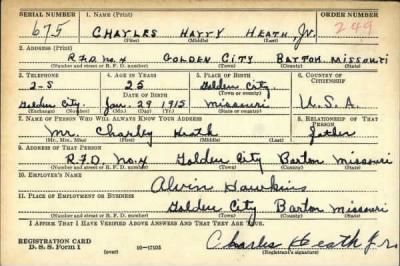 SERIAL NUMBER 1. NAME (Print) ORDER NUMBER
675 CHARLES HARRY HEATH, JR. 249
(First) (Middle) (Last)
2. ADDRESS (Print)
R.F.D. No. 4 GOLDEN CITY BARTON MISSOURI
(Number and street or R. F. D. number) (Town) (County) (State)
3. TELEPHONE 4. AGE IN YEARS 5. PLACE OF BIRTH 6. COUNTRY OF CITIZENSHIP
2-5 25 Golden City
DATE OF BIRTH (Town or county)
Golden City. Jan. 29 1915 Missouri U.S.A.
(Exchange) (Number) (Mo.) (Day) (Yr.) (State or country)
7. NAME OF PERSON WHO WILL ALWAYS KNOW YOUR ADDRESS 8. RELATIONSHIP OF THAT PERSON
Mr. Charley Heath father
(Mr., Mrs., Miss) (First) (Middle) (Last)
9. ADDRESS OF THAT PERSON
R.F.D. No. 4 Golden City Barton Missouri
(Number and street or R. F. D. number) (Town) (County) (State)
10. EMPLOYER'S NAME
Alvin Hawkins
11. PLACE OF EMPLOYMENT OR BUSINESS
Golden City Barton Missouri
(Number and street or R. F. D. number) (Town) (County) (State)
I AFFIRM THAT I HAVE VERIFIED ABOVE ANSWERS AND THAT THEY ARE TRUE.
REGISTRATION CARD
D. S. S. Form 1 16—17105 Charles Heath Jr.
(Registrant's signature)